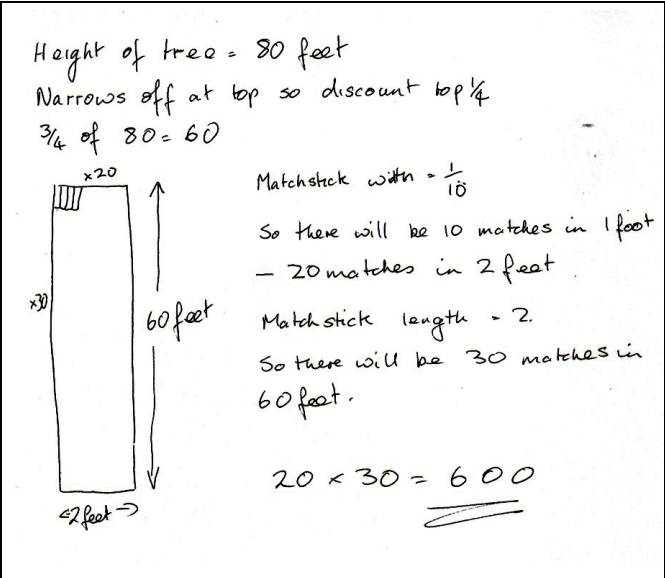 Height of tree = 80 feet
Narrows off at top so discount top 1/4
3/4 of 80 = 60
x20
Matchstick width = 1/10
So there will be 10 matches in 1 foot
— 20 matches in 2 feet
x30
60 feet
Matchstick length = 2.
So there will be 30 matches in
60 feet.
20 x 30 = 600
<-2 feet->